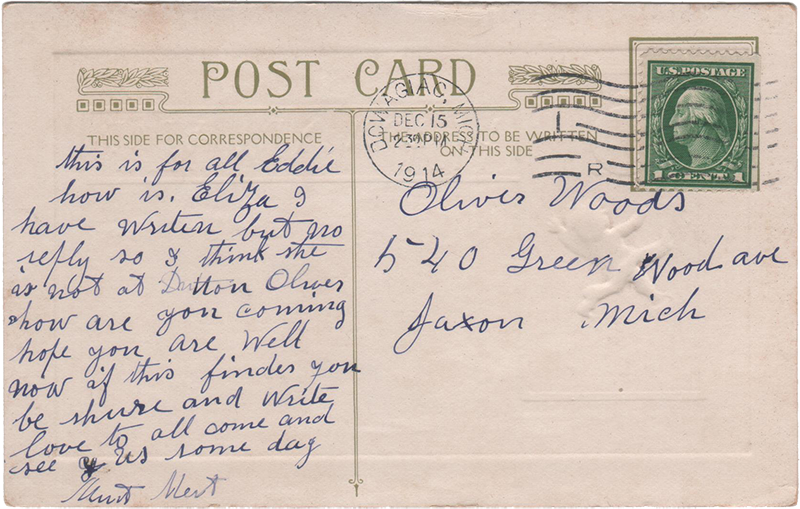 POST CARD
THIS SIDE FOR CORRESPONDENCE
THE ADDRESS TO BE WRITTEN
ON THIS SIDE
DOWAGIAC, MICH.
DEC 15
30 PM
1914
R
U.S. POSTAGE
1 CENT 1
this is for all Eddie
how is. Eliza I
have writen but no
reply so I think she
is not at Dutton Oliver
how are you coming
hope you are Well
now if this findes you
be shure and write
love to all come and
see us some day
Aunt Mert
Oliver Woods
540 Green Wood ave
Jaxon Mich